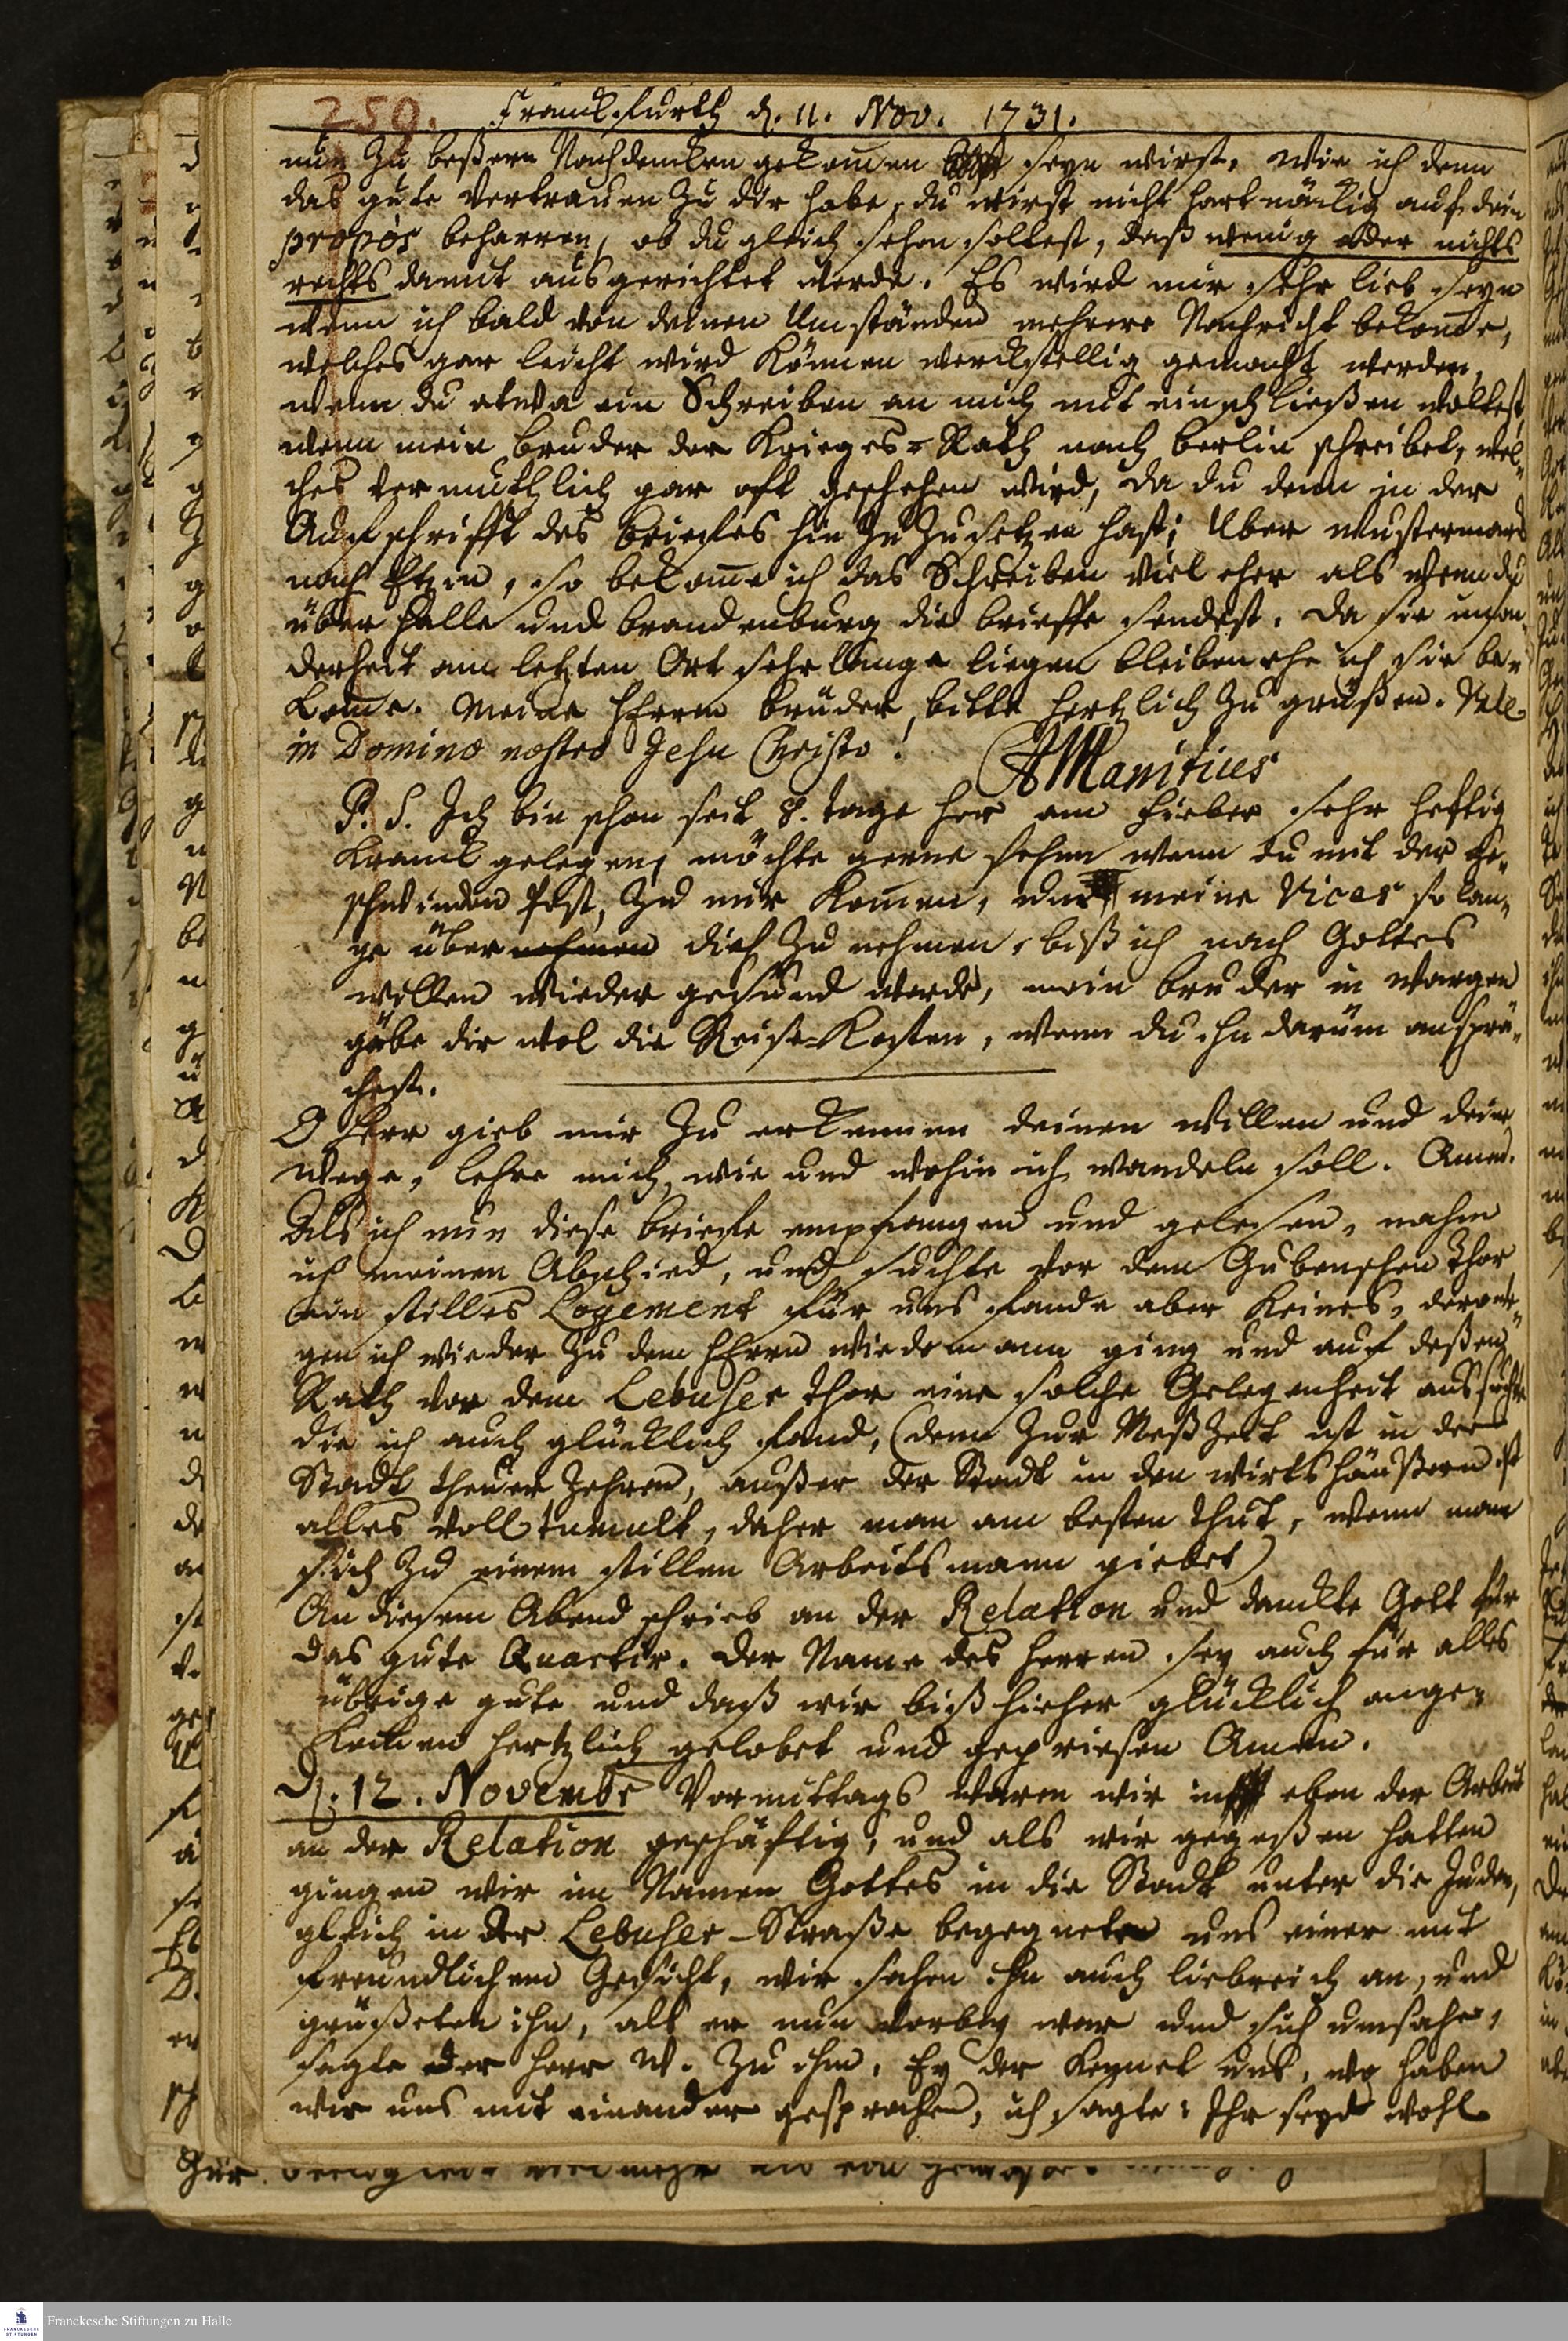 259. Franckfurth d. 11. Nov. 1731.
nun zu beßern Nachdencken gekommen seyn wirst. wie ich denn
das gute Vertrauen zu dir habe, du wirst nicht hartnäckig auf dein
propòs beharren, ob du gleich sehen soltest, daß wenig oder nichts
rechts damit ausgerichtet werde. Es wird mir sehr lieb seyn
wenn ich bald von deinen Umständen mehrere Nachricht bekomme,
welches gar leicht wird können werckstellig gemacht werden,
wenn du etwa ein Schreiben an mich mit einschließen woltest
wenn mein Bruder der Krieges-Rath nach Berlin schreibet, wel-
ches vermuthlich gar oft geschehen wird, da du denn in der
Aufschrifft des Briefes hin zu zusetzen hast; Uber Wustermarck
nach Etzin, so bekomme ich das Schreiben viel eher als wenn du
über Halle und Brandenburg die Brieffe sendest. da sie inson-
derheit am letzten Ort sehr lange liegen bleiben ehe ich sie be-
komme. Meine HErrn Brüder, bitte hertzlich zu grüßen. Vale
in Domino nostro Jesu Christo! AManitius
P. S. Ich bin schon seit 8. tage her am Fieber sehr heftig
kranck gelegen, möchte gerne sehen wenn du mit der ge-
schwinden Post, zu mir kommen, und meine Vices so lan-
ge über nehmen dich zu nehmen, biß ich nach Gottes
willen wieder gesund werde, mein Bruder in
gäbe dir wol die Reise-Kosten, wenn du ihn darum ansprä-
chest.
O HErr gieb mir zu erkennen deinen Willen und deine
Wege, lehre mich, wie und wohin ich wandeln soll. Amen.
Als ich nun diese Briefe empfangen und gelesen, nahm
ich meinen Abschied, und suchte vor dem Gubenschen Thor
ein stilles Logement für uns fande aber keines, derowe-
gen ich wieder zu dem HErrn Wiedemann ging und auf deßen
Rath vor dem Lebuser Thor eine solche Gelegenheit aussuchte
die ich auch glücklich fand, (denn zur Meßzeit ist in der
Stadt theuer zehren, außer der Stadt in den Wirtshäußern ist
alles voll tumult, daher man am besten thut, wenn man
sich zu einem stillen Arbeitsmann giebet)
An diesem Abend schrieb an der Relation und danckte Gott für
das gute Quartir. Der Name des Herren sey auch für alles
übrige gute und daß wir biß hieher glücklich ange-
kommen hertzlich gelobet und gepriesen Amen.
D. 12. Novembr Vormittags waren wir in eben der Arbeit
an der Relation geschäftig, und als wir gegeßen hatten
gingen wir im Namen Gottes in die Stadt unter die Juden,
gleich in der Lebuser-Straße begegnete uns einer mit
freundlichem Gesicht, wir sahen ihn auch liebreich an, und
grüßeten ihn, als er nun vorbey war und sich umsahe,
sagte der Herr W. zu ihm, Ey der kennet uns, wo haben
wir uns mit einander gesprochen, ich sagte: Ihr seyd wohl
Franckesche Stiftungen zu Halle